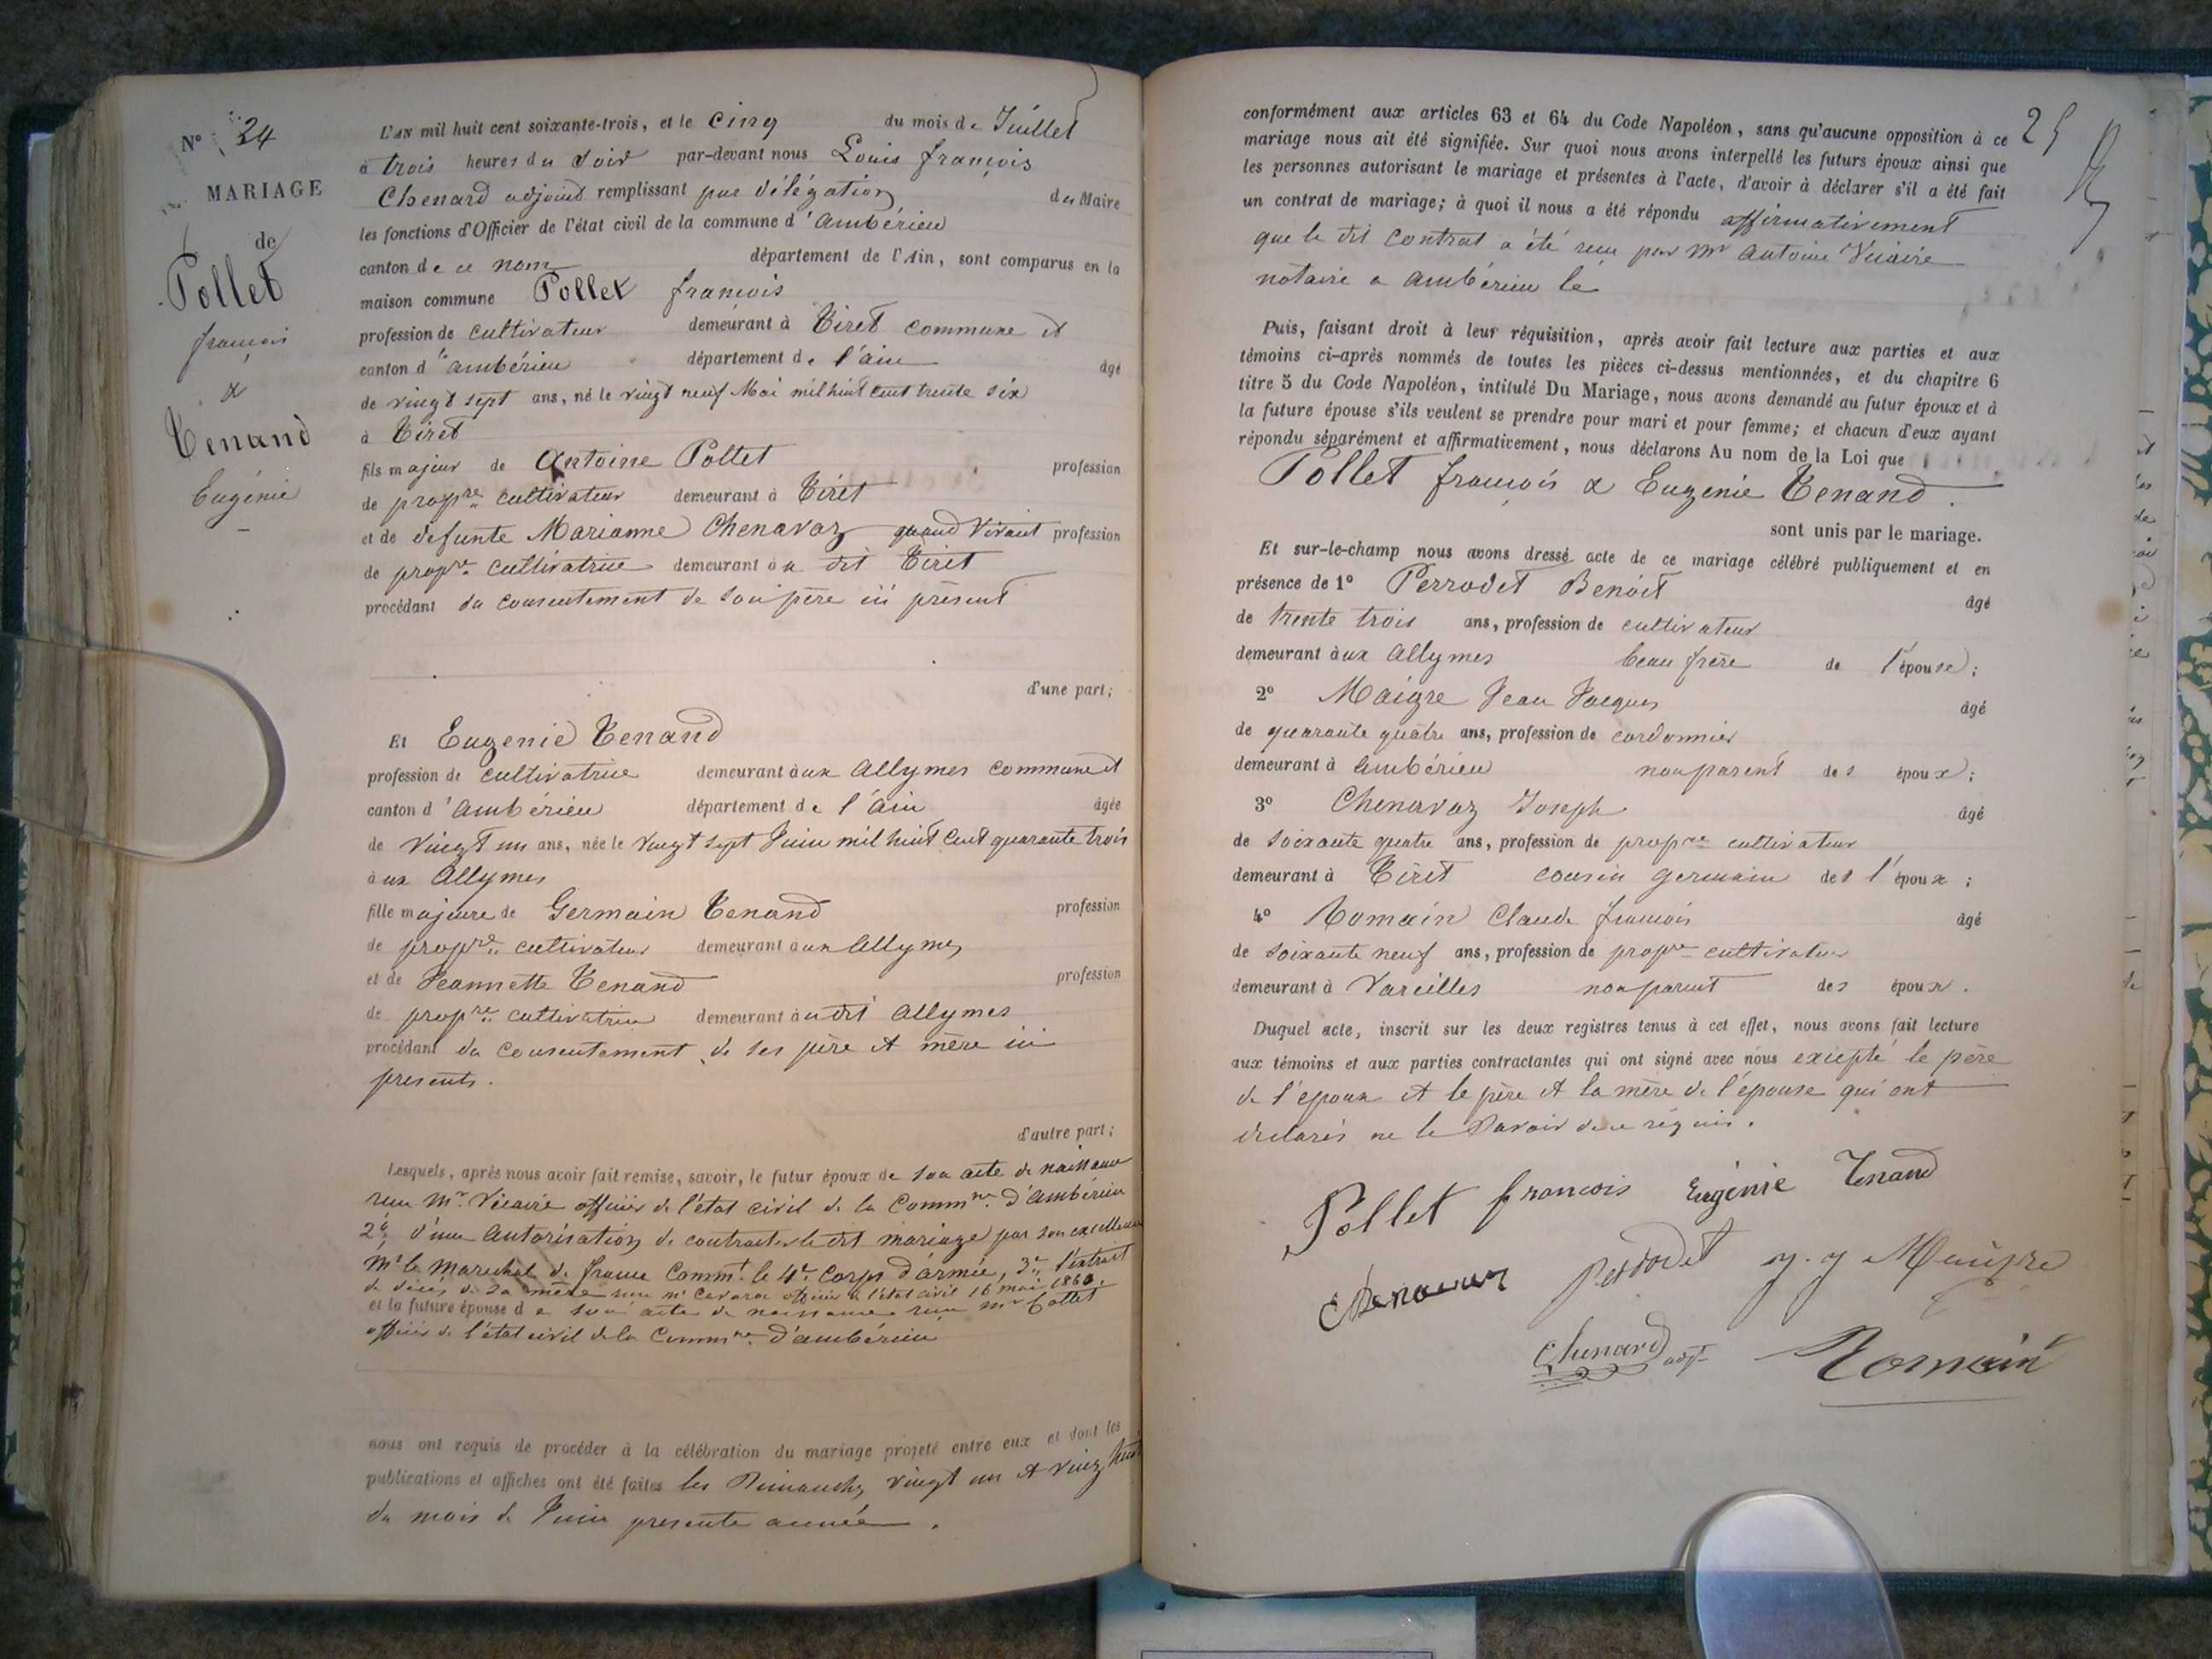 N° 24
MARIAGE
de
Pollet
françois
&
Tenand
Eugénie
L'AN mil huit cent soixante-trois, et le Cinq du mois de Juillet
à trois heures du soir par-devant nous Louis françois
Chenard adjoint remplissant par délégation du Maire
les fonctions d'Officier de l'état civil de la commune d'ambérieu
canton de ce nom département de l'Ain, sont comparus en la
maison commune Pollet françois
profession de cultivateur demeurant à Tiret commune et
canton d'ambérieu département de l'ain âgé
de vingt sept ans, né le vingt neuf Mai mil huit cent trente six
à Tiret
fils majeur de Antoine Pollet profession
de propre cultivateur demeurant à Tiret
et de defunte Marianne Chenavaz quand vivant profession
de propre cultivatrice demeurant au dit Tiret
procédant du consentement de son père ici présent
d'une part;
Et Eugenie Tenand
profession de cultivatrice demeurant aux Allymes commune et
canton d'ambérieu département de l'Ain âgée
de vingt un ans, née le vingt sept Juin mil huit cent quarante trois
aux Allymes
fille majeure de Germain Tenand profession
de propre cultivateur demeurant aux Allymes
et de Jeannette Tenand profession
de propre cultivatrice demeurant au dit Allymes
procédant du consentement de ses père et mère ici
presents.
d'autre part;
Lesquels, après nous avoir fait remise, savoir, le futur époux de son acte de naissance
reçu Mr Vicaire officier de l'état civil de la Commne d'ambérieu
2° d'une Autorisation de contracter le dit mariage par son excellence
Mr le Marechal de france Commt le 4e Corps d'armée, 3° l'extrait
de décès de sa mère reçu mr officier de l'état civil 16 mai 1860.
et la future épouse de son acte de naissance reçu mr Collet
officier de l'état civil de la Commne d'ambérieu
nous ont requis de procéder à la célébration du mariage projeté entre eux et dont les
publications et affiches ont été faites les Dimanches vingt un et vingt huit
du mois de Juin presente année.
25
conformément aux articles 63 et 64 du Code Napoléon, sans qu'aucune opposition à ce
mariage nous ait été signifiée. Sur quoi nous avons interpellé les futurs époux ainsi que
les personnes autorisant le mariage et présentes à l'acte, d'avoir à déclarer s'il a été fait
un contrat de mariage; à quoi il nous a été répondu affirmativement
que le dit contrat a été reçu par Mr Antoine Vicaire
notaire a ambérieu le
Puis, faisant droit à leur réquisition, après avoir fait lecture aux parties et aux
témoins ci-après nommés de toutes les pièces ci-dessus mentionnées, et du chapitre 6
titre 5 du Code Napoléon, intitulé Du Mariage, nous avons demandé au futur époux et à
la future épouse s'ils veulent se prendre pour mari et pour femme; et chacun d'eux ayant
répondu séparément et affirmativement, nous déclarons Au nom de la Loi que
Pollet françois & Eugenie Tenand.
sont unis par le mariage.
Et sur-le-champ nous avons dressé acte de ce mariage célébré publiquement et en
présence de 1° Perrodet Benoit âgé
de trente trois ans, profession de cultivateur
demeurant aux Allymes beau frère de l'épouse;
2° Maigre Jean Jacques âgé
de quarante quatre ans, profession de cordonnier
demeurant à ambérieu non parent des époux;
3° Chenavaz Joseph âgé
de soixante quatre ans, profession de propre cultivateur
demeurant à Tiret cousin germain de l'époux;
4° Romain Claude françois âgé
de soixante neuf ans, profession de propre cultivateur
demeurant à Vareilles non parent des époux.
Duquel acte, inscrit sur les deux registres tenus à cet effet, nous avons fait lecture
aux témoins et aux parties contractantes qui ont signé avec nous excepté le père
de l'époux et le père et la mère de l'épouse qui ont
declarés ne le savoir de ce réquis.
Pollet francois Eugénie Tenand
Chenavaz perrodet j. j Maigre
Chenard adjt Romain